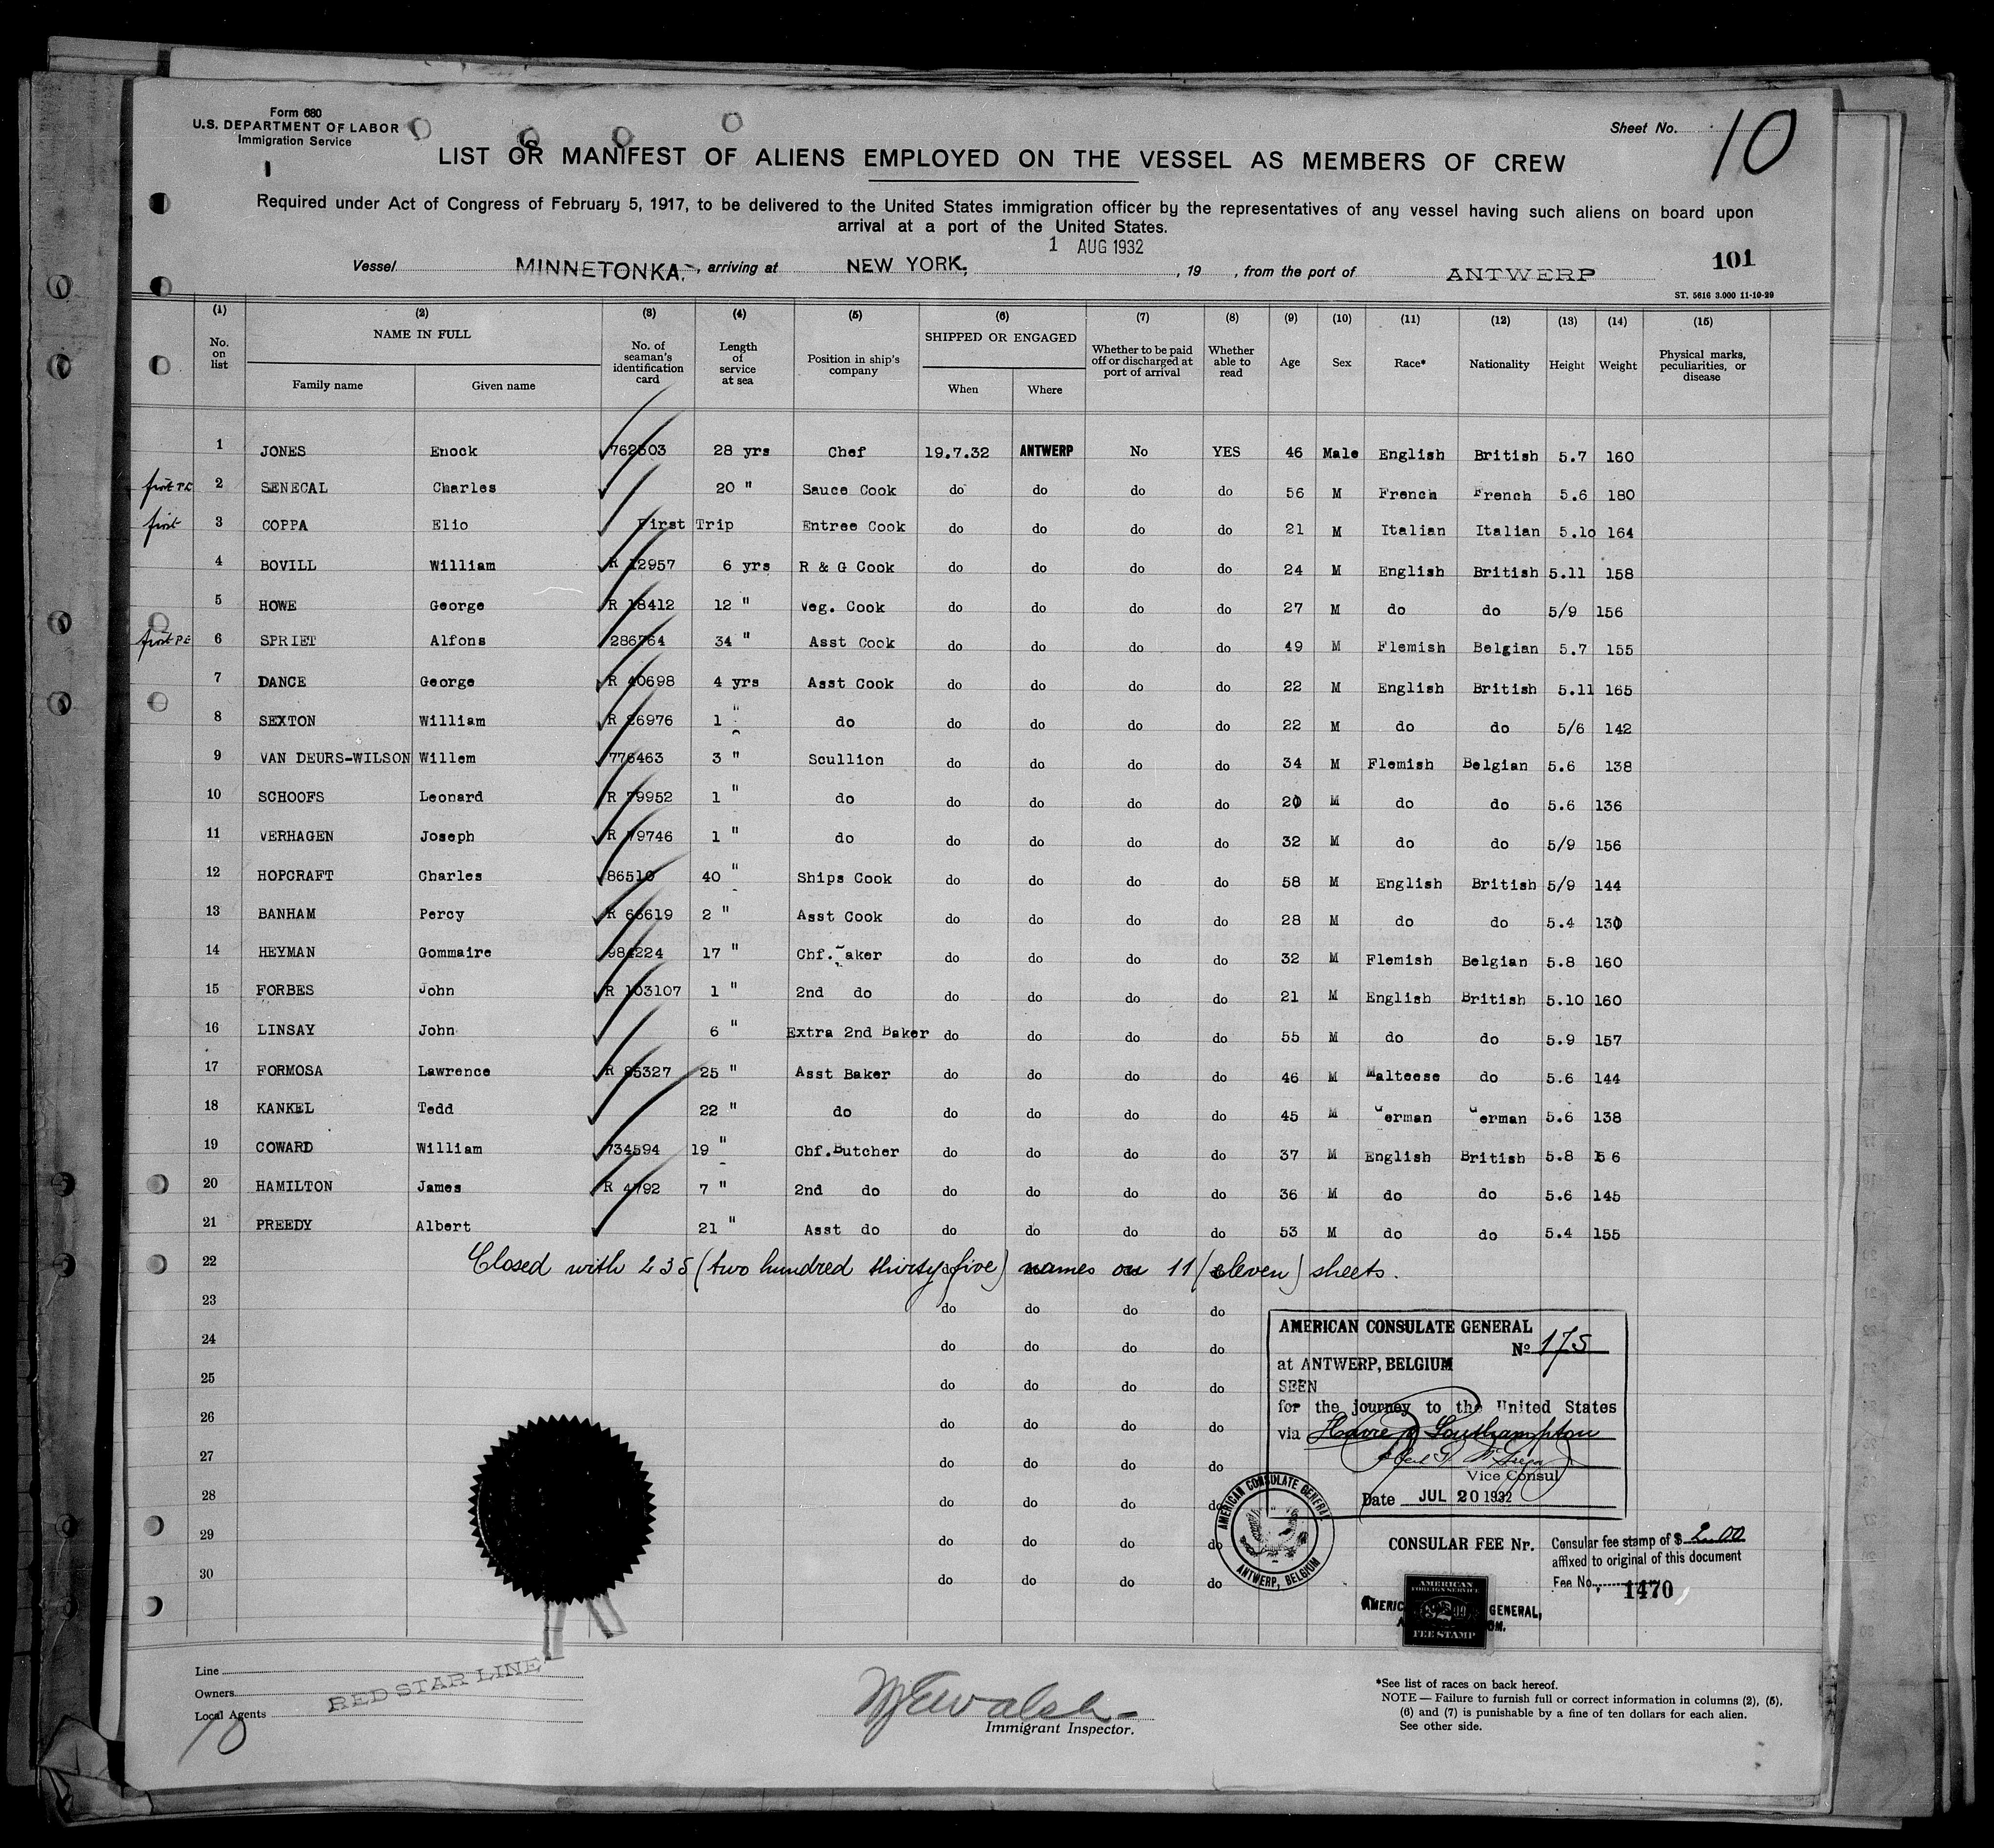 Form 680
U.S. DEPARTMENT OF LABOR
Immigration Service
Sheet No. 10
LIST OR MANIFEST OF ALIENS EMPLOYED ON THE VESSEL AS MEMBERS OF CREW
Required under Act of Congress of February 5, 1917, to be delivered to the United States immigration officer by the representatives of any vessel having such aliens on board upon
arrival at a port of the United States.
1 AUG 1932
Vessel MINNETONKA. , arriving at NEW YORK, , 19 , from the port of ANTWERP
101
ST. 5616 3.000 11-10-29
(1) (2) (3) (4) (5) (6) (7) (8) (9) (10) (11) (12) (13) (14) (15)
No. on list NAME IN FULL Family name Given name No. of seaman's identification card Length of service at sea Position in ship's company SHIPPED OR ENGAGED When Where Whether to be paid off or discharged at port of arrival Whether able to read Age Sex Race* Nationality Height Weight Physical marks, peculiarities, or disease
1 JONES Enock 762503 28 yrs Chef 19.7.32 ANTWERP No YES 46 Male English British 5.7 160
first 2 SENECAL Charles 20 " Sauce Cook do do do do 56 M French French 5.6 180
first 3 COPPA Elio First Trip Entree Cook do do do do 21 M Italian Italian 5.10 164
4 BOVILL William R 12957 6 yrs R & G Cook do do do do 24 M English British 5.11 158
5 HOWE George R 18412 12 " Veg. Cook do do do do 27 M do do 5/9 156
first 6 SPRIET Alfons 286764 34 " Asst Cook do do do do 49 M Flemish Belgian 5.7 155
7 DANCE George R 40698 4 yrs Asst Cook do do do do 22 M English British 5.11 165
8 SEXTON William R 86976 1 " do do do do do 22 M do do 5/6 142
9 VAN DEURS-WILSON Willem 776463 3 " Scullion do do do do 34 M Flemish Belgian 5.6 138
10 SCHOOFS Leonard R 79952 1 " do do do do do 20 M do do 5.6 136
11 VERHAGEN Joseph R 79746 1 " do do do do do 32 M do do 5/9 156
12 HOPCRAFT Charles 86510 40 " Ships Cook do do do do 58 M English British 5/9 144
13 BANHAM Percy R 66619 2 " Asst Cook do do do do 28 M do do 5.4 130
14 HEYMAN Gommaire 984224 17 " Chf. aker do do do do 32 M Flemish Belgian 5.8 160
15 FORBES John R 103107 1 " 2nd do do do do do 21 M English British 5.10 160
16 LINSAY John 6 " Extra 2nd Baker do do do do 55 M do do 5.9 157
17 FORMOSA Lawrence R 95327 25 " Asst Baker do do do do 46 M Malteese do 5.6 144
18 KANKEL Tedd 22 " do do do do do 45 M German German 5.6 138
19 COWARD William 734594 19 " Chf.Butcher do do do do 37 M English British 5.8 156
20 HAMILTON James R 4792 7 " 2nd do do do do do 36 M do do 5.6 145
21 PREEDY Albert 21 " Asst do do do do do 53 M do do 5.4 155
22 Closed with 235 (two hundred thirty five) names on 11 (eleven) sheets.
23 do do do do
24 do do do do
25 do do do do
26 do do do do
27 do do do do
28 do do do do
29 do do do do
30 do do do do
AMERICAN CONSULATE GENERAL
No 175
at ANTWERP, BELGIUM
SEEN
for the journey to the United States
via Havre & Southampton
Vice Consul
Date JUL 20 1932
AMERICAN CONSULATE GENERAL ANTWERP, BELGIUM
CONSULAR FEE Nr.
Consular fee stamp of $ 2.00
affixed to original of this document
Fee No. 1470
AMERICAN FOREIGN SERVICE
FEE STAMP
AMERIC GENERAL,
Line
Owners
Local Agents
RED STAR LINE
10
Walsh
Immigrant Inspector.
*See list of races on back hereof.
NOTE — Failure to furnish full or correct information in columns (2), (5),
(6) and (7) is punishable by a fine of ten dollars for each alien.
See other side.